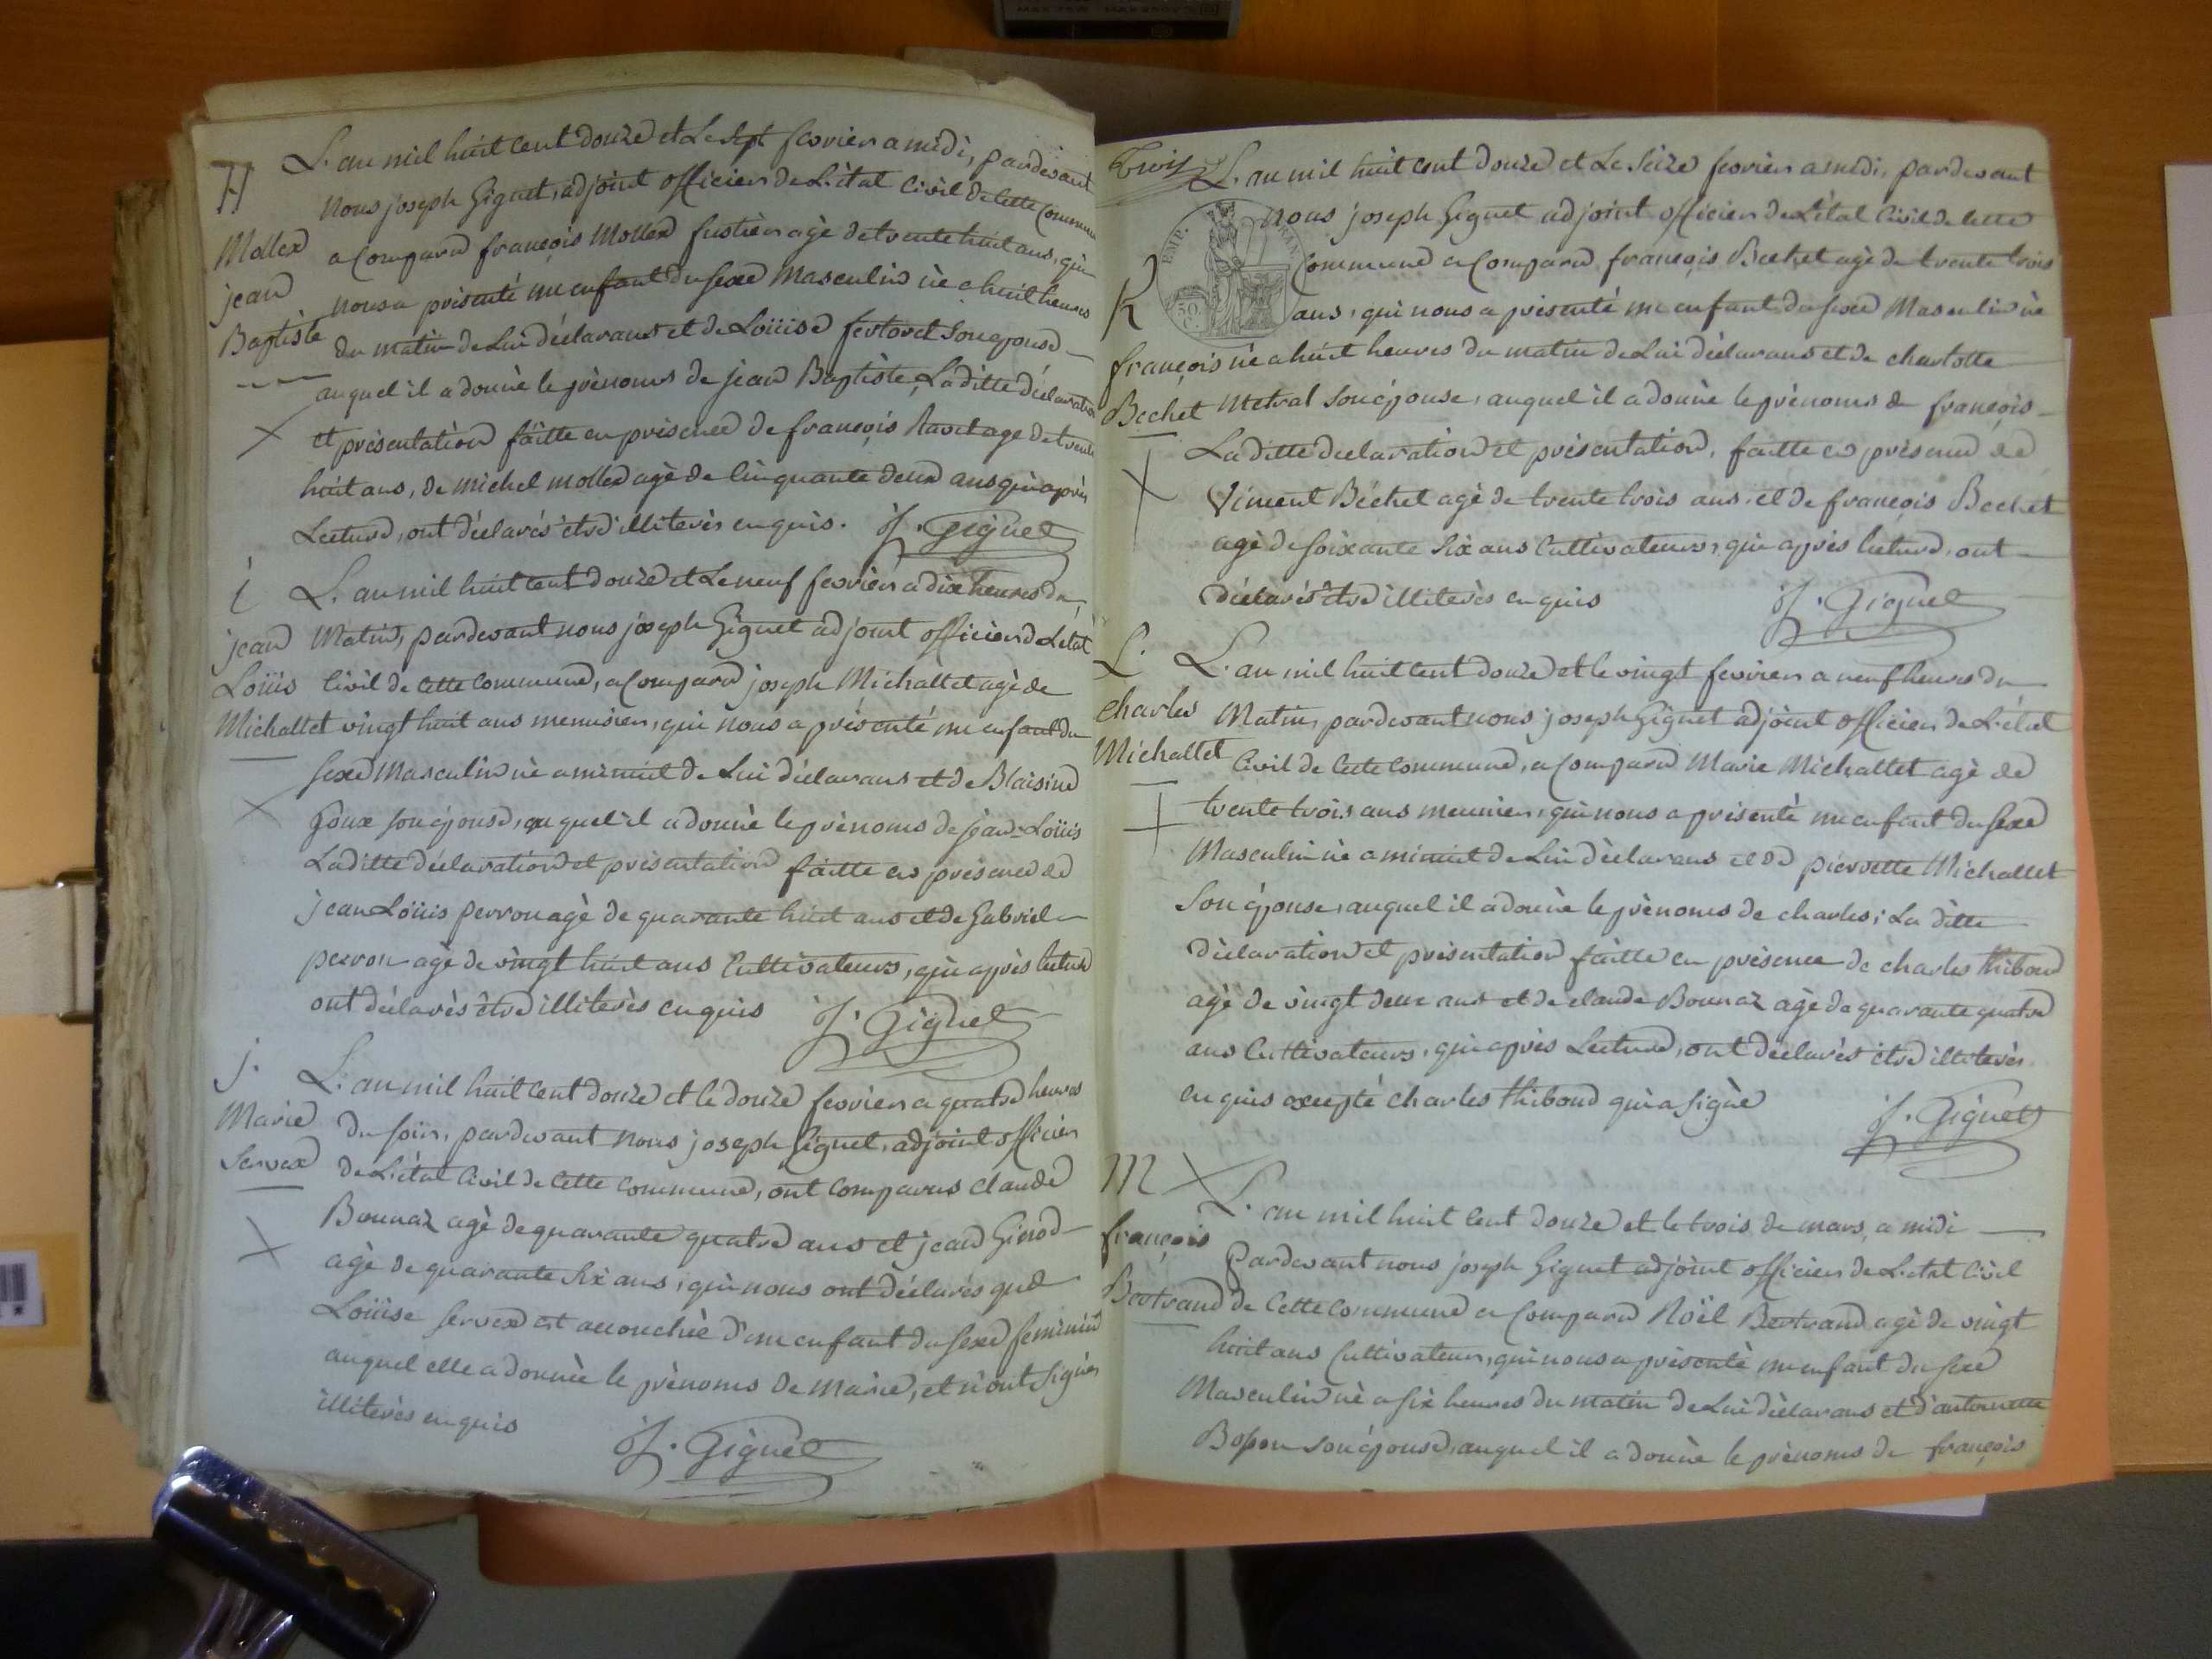 H
Mollex
jean
Baptiste
L'an mil huit cent douze et Le Sept fevrier a midi, pardevant
nous joseph Giguet, adjoint officier de L'état Civil de Cette Commune
a Comparu françois Mollex fustier agè de trente huit ans, qui
nous a présenté un enfant du sexe Masculin nè a huit heures
du matin de Lui déclarans et de Loüise Son épouse
auquel il a donnè le prènoms de jean Baptiste, La ditte déclaration
et présentation faitte en présence de françois agè de trente
huit ans, de michel mollex agè de Cinquante deux ans qui après
Lecture, ont déclarés être illiterés enquis. J. Giguet
i
jean
Loüis
Michallet
L'an mil huit cent douze et Le neuf fevrier a dix heures du
Matin, pardevant nous joseph Giguet adjoint officier de L'etat
Civil de Cette Commune, a Comparu joseph Michallet agè de
vingt huit ans menusier, qui nous a présenté un enfant du
sexe Masculin nè a minuit de Lui déclarans et de Blaisine
Goux son épouse, auquel il a donnè le prènoms de jean-Loüis
La ditte déclaration et présentation faitte en présence de
jean Loüis perron agè de quarante huit ans et de Gabriel
perron agè de vingt huit ans Cultivateurs, qui après lecture
ont déclarès être illiterès enquis J. Giguet
j.
Marie
Servex
L'an mil huit cent douze et le douze fevrier a quatre heures
du soir, pardevant nous joseph Giguet, adjoint officier
de L'état Civil de Cette Commune, ont Comparus claude
Bounaz agè de quarante quatre ans et jean Girod
agè de quarante Six ans, qui nous ont déclarés que
Loüise Servex est accouchée d'un enfant du sexe feminin
auquel elle a donnèe le prènoms de marie, et n'ont Signès
illiterès enquis J. Giguet
Trois
EMP. FRAN
50 C.
K
françois
Bechet
L'an mil huit cent douze et Le Seize fevrier a midi, pardevant
nous joseph Giguet adjoint officier de L'état Civil de Cette
Commune a Comparu françois Bechet agè de trente trois
ans, qui nous a présenté un enfant du sexe Masculin nè
nè a huit heures du matin de Lui déclarans et de charlotte
Metral Son épouse, auquel il a donnè le prènoms de françois
La ditte declaration et présentation, faitte en présence de
Vincent Béchet agè de trente trois ans, et de françois Bechet
agè de soixante Six ans Cultivateurs, qui après lecture, ont
déclarés être illiterès enquis J. Giguet
L.
charles
Michallet
L'an mil huit cent douze et le vingt fevrier a neuf heures du
Matin, pardevant nous joseph Giguet adjoint officier de L'état
Civil de Cette Commune, a Comparu Marie Michallet agè de
trente trois ans meunier, qui nous a présenté un enfant du sexe
Masculin nè a minuit de Lui déclarans et de pierrette Michallet
Son épouse, auquel il a donnè le prènoms de charles; La ditte
dèclaration et présentation faitte en présence de charles thiboud
agè de vingt deux ans et de claude Bounaz agè de quarante quatre
ans Cultivateurs, qui après Lecture, ont déclarès être illiterès
enquis excepté charles thiboud qui a Signè J. Giguet
M
françois
Bertrand
L'an mil huit cent douze et le trois de mars, a midi
Pardevant nous joseph Giguet adjoint officier de L'etat Civil
de Cette Commune a Comparu Noël Bertrand agè de vingt
huit ans Cultivateur, qui nous a présentè un enfant du sexe
Masculin nè a six heures du matin de Lui dèclarans et d'antoinette
Bosson Son épouse, auquel il a donnè le prènoms de françois